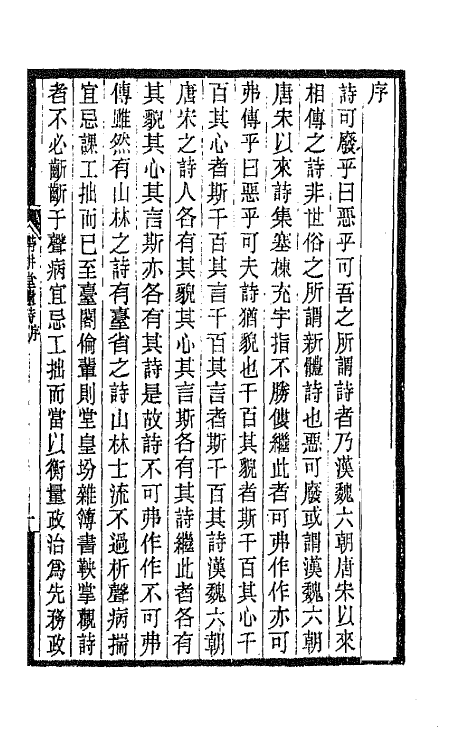 序
詩可廢乎曰惡乎可吾之所謂詩者乃漢魏六朝唐宋以來
相傳之詩非世俗之所謂新體詩也惡可廢或謂漢魏六朝
唐宋以來詩集塞棟充宇指不勝僂繼此者可弗作作亦可
弗傳乎曰惡乎可夫詩猶貌也千百其貌者斯千百其心千
百其心者斯千百其言千百其言者斯千百其詩漢魏六朝
唐宋之詩人各有其貌其心其言斯各有其詩繼此者各有
其貌其心其言斯亦各有其詩是故詩不可弗作作不可弗
傳雖然有山林之詩有臺省之詩山林士流不過析聲病揣
宜忌課工拙而已至臺閣倫輩則堂皇坋雜簿書鞅掌觀詩
者不必齗齗于聲病宜忌工拙而當以衡量政治爲先務政
詩序
一